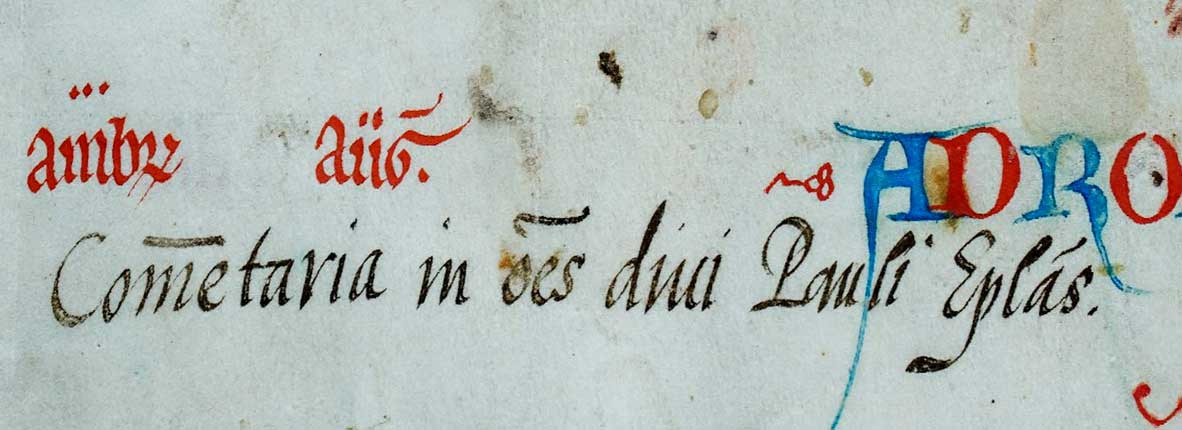 ambr̅ Aug̅. ADRO
Com̅etaria in o̅es diui Pauli Eplās.